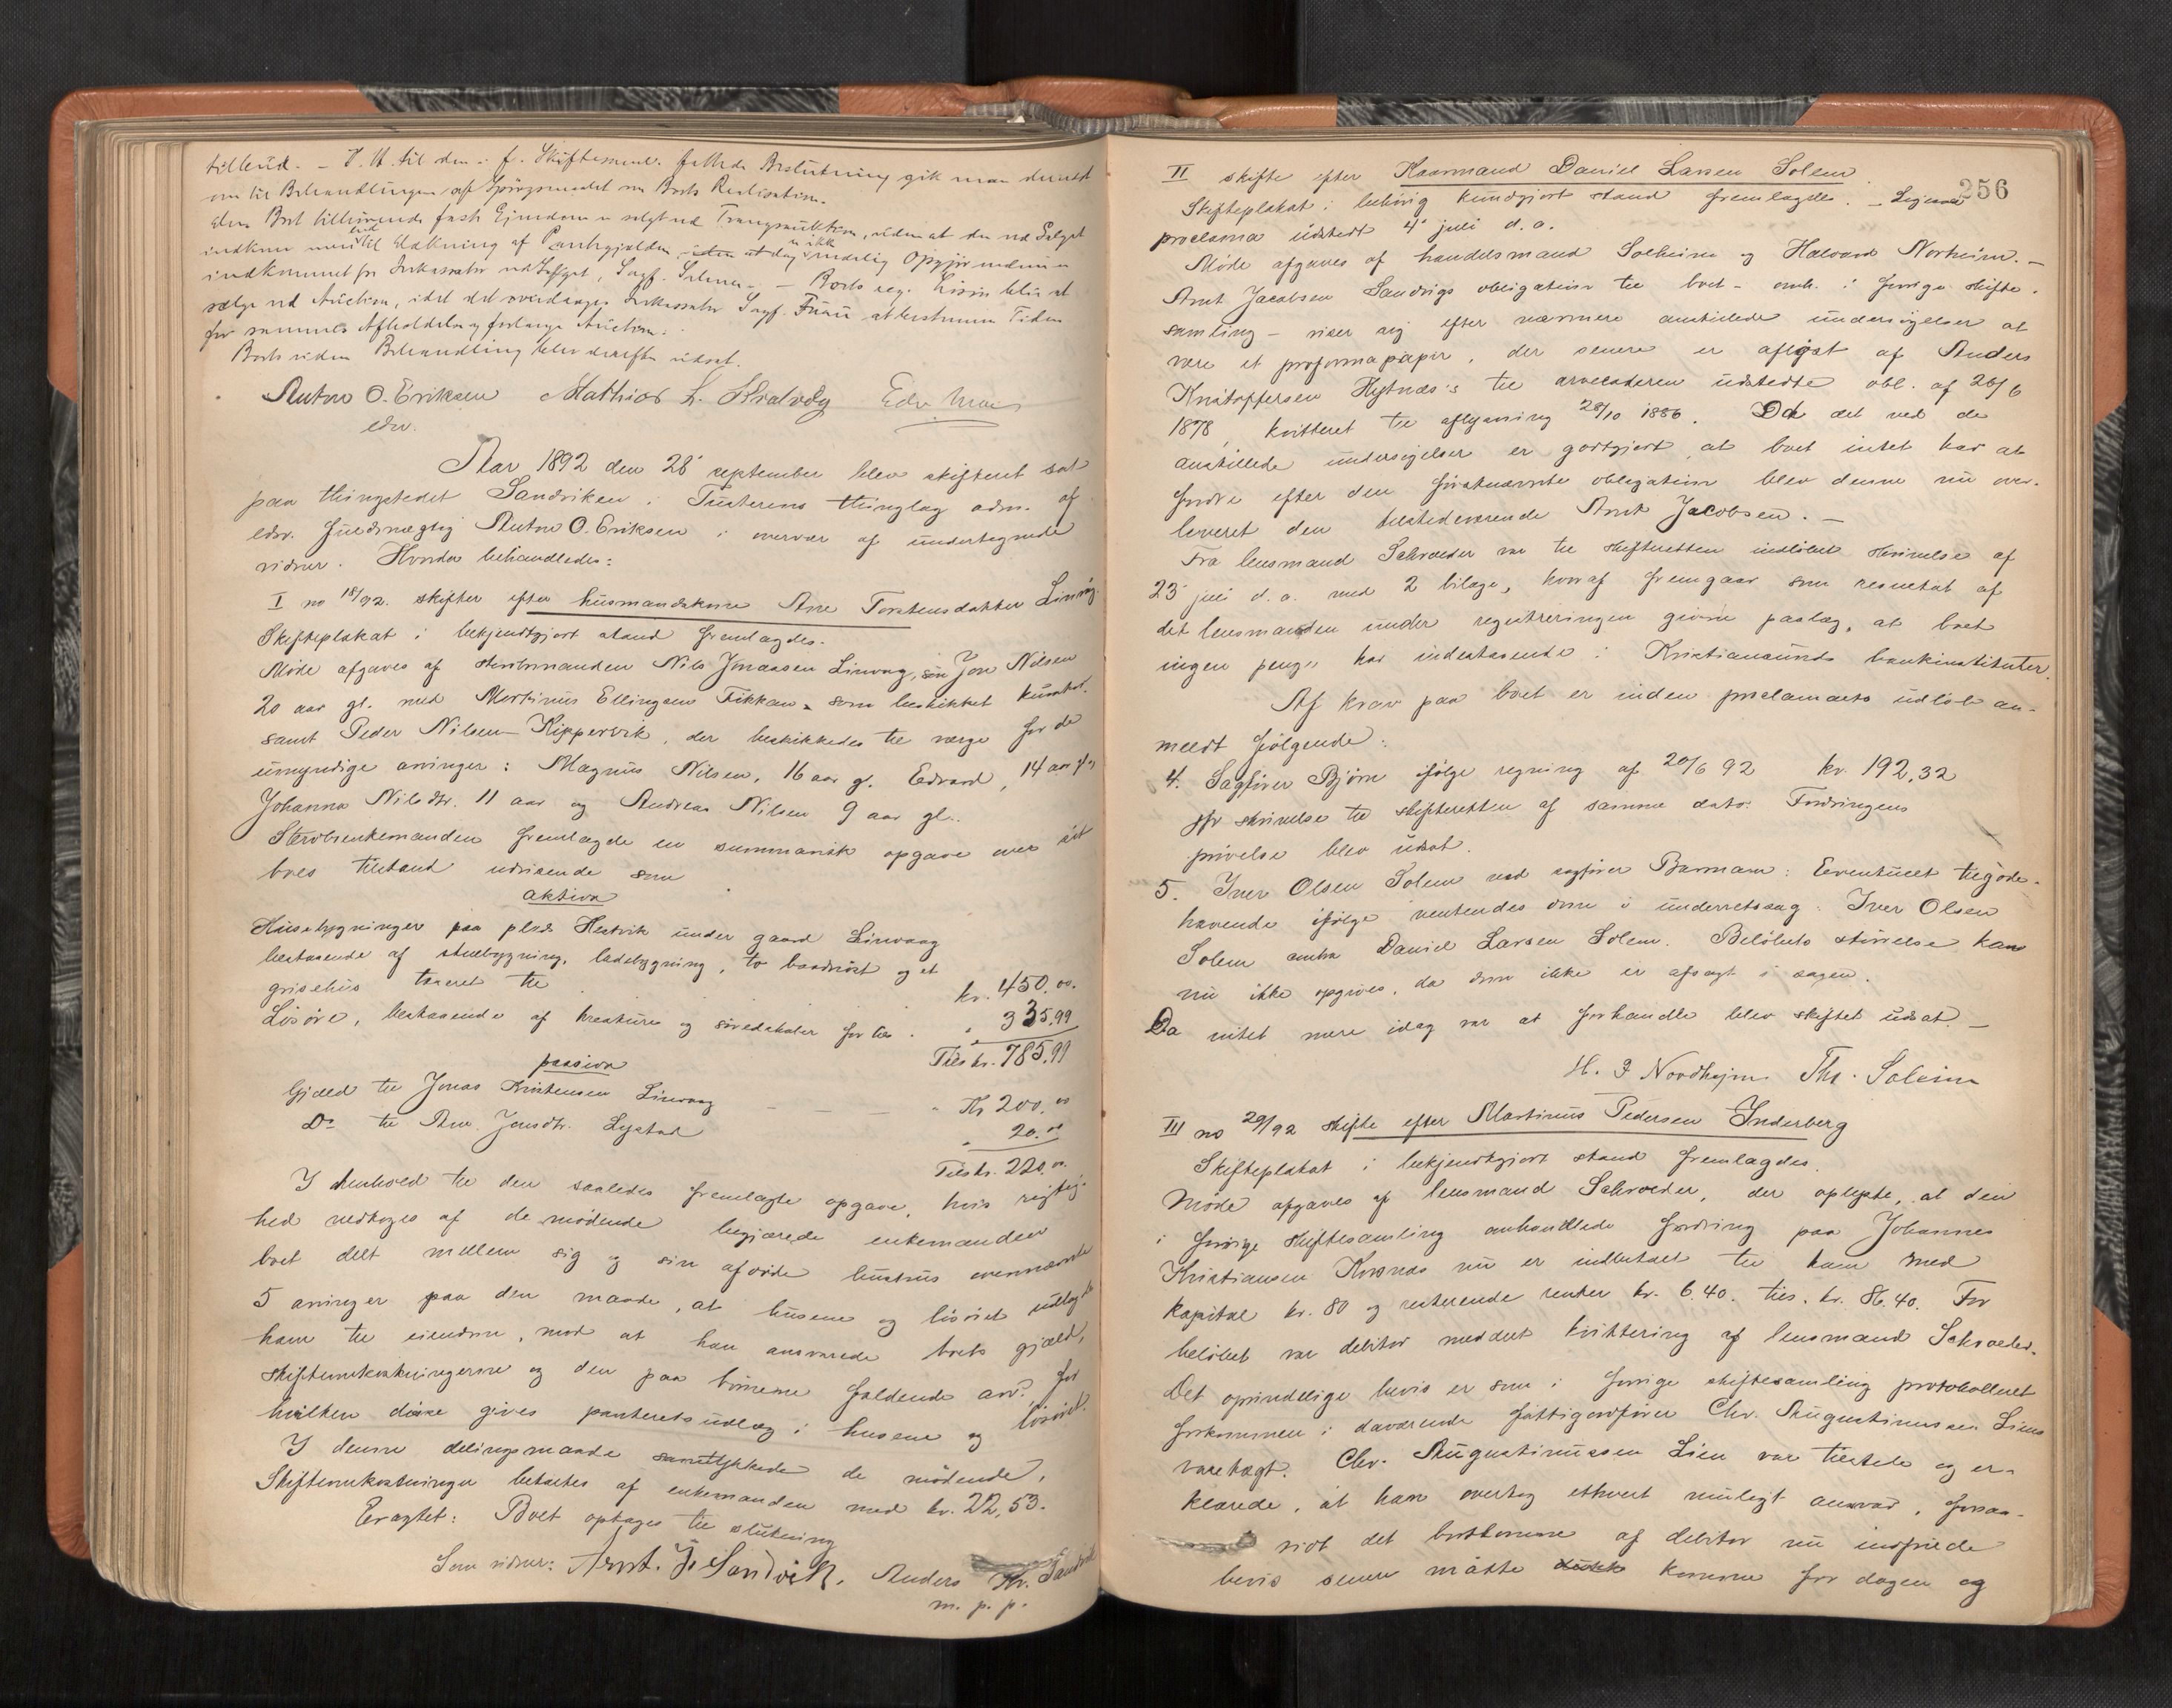 tilbud. – I. H. til den i f. Skiftesaml. fattede Beslutning gik man derefter
om til Behandlingen af Spørgsmaalet om Boets Realisation.
Den Boet tilhørende faste Ejendom er solgt ved Tvangsauktion, uden at der ved Salget
indkom mere end til Dækning af Panthegjælden, endelig Opgjør endnu er ikke
indkommet fra Inkassator ved Salget, Sagf. – Boets reg. Løsøre blir at
sælge ved Auktion, idet det overdrages Inkassator Sagf. at bestemme Tiden
for sammes Afholdelse og forlange Auktion.
Boets videre Behandling blev derefter udsat.
Anton O. Eriksen Mathias L. Edv.
edsv.
Aar 1892 den 28 september blev skifteret sat
paa thingstedet Sandviken i Tusterens thinglag adm. af
edsv. fuldmægtig Anton O. Eriksen i overvær af undertegnede
vidner. Hvorda behandledes:
I no 18/92. skifter efter husmandskone Ane Torstensdatter Linvåg.
Skifteplakat i bekjendtgjort stand fremlagdes.
Møde afgaves af Nils Jonassen Linvaag, søn Jon Nilsen
20 aar gl. med Martinus Ellingsen Fikkan, som beskikket kurator
samt Peder Nilsen Kippervik, der beskikkedes til værge for de
umyndige arvinger: Magnus Nilsen, 16 aar gl. Edvard, 14 aar gl.,
Johanna Nilsdtr. 11 aar og Andreas Nilsen 9 aar gl..
Stervboenkemanden fremlagde en summarisk opgave over sit
boes tilstand udvisende som
aktiva
Husebygninger paa plads Hestvik under gaard Linvaag
bestaaende af stuebygning, ladebygning, to baadnøst og et
grisehus taxeret til kr. 450.00.
Løsøre, bestaaende af kreature og søredskaber for til. " 335,99
Tils kr. 785,99
passiva
Gjæld til Jonas Kristensen Linvaag – – – " Kr 200,00
Do til Ane Jonsdtr. Lystad " 20.00
Tils kr. 220.00
I henhold til den saaledes fremlagte opgave, hvis rigtig-
hed vedtoges af de mødende begjærede enkemanden
boet delt mellem sig og sin afdøde hustrus ovennævnte
5 arvinger paa den maade, at husene og løsøret udlagdes
ham til eiendom, mod at han ansvarede boets gjæld,
skifteomkostningerne og den paa børnene faldende arv, for
hvilken disse gives panteretsudlæg i husene og løsøret.
I denne delingsmaade samtykkede de mødende.
Skifteomkostninger betaltes af enkemanden med kr. 22,53.
Eragtet: Boet optages til slutning
Som vidner: Arnt. J. Sandvik. Anders Kr. Sandvik
m. p. p.
256
II skifte efter Kaarmand Daniel Larsen Solem.
Skifteplakat i behørig kundgjort stand fremlagdes. – Ligesaa
proclama udstedt 4 juli d. a.
Møde afgaves af handelsmand Solheim og Halvard Norheim. –
Arnt Jacobsen Sandvigs obligation til boet – omh. i forrige skifte-
samling – viser sig efter nærmere anstillede undersøgelser at
være et proformapapir, der senere er afløst af Anders
Kristoffersen Hestnæs's til arveladeren udstedte obl. af 26/6
1878, kvitteret til aflysning 28/10 1886. Da det ved de
anstillede undersøgelser er godtgjort, at boet intet har at
fordre efter den førstnævnte obligation blev denne nu over-
leveret den tilstedeværende Arnt Jacobsen. –
Fra lensmand Schrøder var til skifteretten indløbet skrivelse af
23 juli d. a. med 2 bilage, hvoraf fremgaar som resultat af
det lensmanden under registreringen givne paalæg, at boet
ingen penge har indestaaende i Kristiansunds bankinstituter.
Af krav paa boet er inden proclamaets udløb an-
meldt følgende:
4. Sagfører Bjørn ifølge regning af 20/6 92 kr. 192,32
jfr skrivelse til skifteretten af samme dato. Fordringens
prøvelse blev udsat.
5. Iver Olsen Solem ved sagfører Barmann: Eventuelt tilgode-
havende ifølge ventendes dom i underretssag. Iver Olsen
Solem contra Daniel Larsen Solem. Beløbets størrelse kan
nu ikke opgives, da dom ikke er afsagt i sagen.
Da intet mere idag var at forhandle blev skiftet udsat. –
H. J Nordhejm. Th. Soleim
III no 20/92 skifte efter Martinus Pedersen Inderberg
Skifteplakat i bekjendtgjort stand fremlagdes.
Møde afgaves af lensmand Schrøder, der oplyste, at den
i forrige skiftesamling omhandlede fordring paa Johannes
Kristiansen Korsnæs nu er indbetalt til ham med
kapital kr. 80 og resterende renter kr. 6.40. tils. kr. 86.40. For
beløbet var debitor meddelt kvittering af lensmand Schroeder.
Det oprindelige bevis er som i forrige skiftesamling protokolleret
forkommen i daværende fattigordfører Chr. Augustinussen Liens
varetægt. Chr. Augustinussen Lien var tilstede og er-
klærede, at han overtog ethvert muligt ansvar, forsaa-
vidt det bortkomne af debitor nu indfriede
bevis senere måtte komme for dagen og